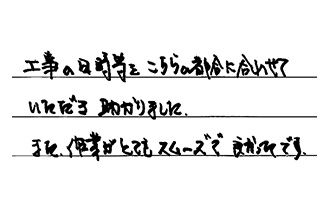 工事の日時等をこちらの都合に合わせて
いただき助かりました。
また、作業がとてもスムーズで良かったです。